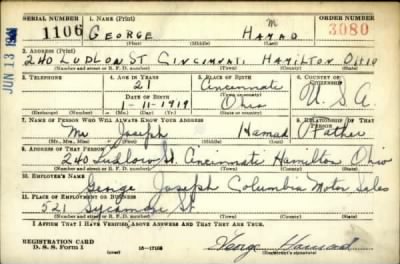 SERIAL NUMBER 1. NAME (Print) ORDER NUMBER
1106 GEORGE M HAMAD 3080
(First) (Middle) (Last)
2. ADDRESS (Print)
240 LUDLOW ST CINCINNATI HAMILTON OHIO
(Number and street or R. F. D. number) (Town) (County) (State)
3. TELEPHONE 4. AGE IN YEARS 5. PLACE OF BIRTH 6. COUNTRY OF CITIZENSHIP
21 Cincinnati
DATE OF BIRTH (Town or county) U.S.A.
1-11-1919 Ohio
(Exchange) (Number) (Mo.) (Day) (Yr.) (State or country)
7. NAME OF PERSON WHO WILL ALWAYS KNOW YOUR ADDRESS 8. RELATIONSHIP OF THAT PERSON
Mr Joseph Hamad Father
(Mr., Mrs., Miss) (First) (Middle) (Last)
9. ADDRESS OF THAT PERSON
240 Ludlow St. Cincinnati Hamilton Ohio
(Number and street or R. F. D. number) (Town) (County) (State)
10. EMPLOYER'S NAME
George Joseph Columbia Motor Sales
11. PLACE OF EMPLOYMENT OR BUSINESS
521 Sycamore St
(Number and street or R. F. D. number) (Town) (County) (State)
I AFFIRM THAT I HAVE VERIFIED ABOVE ANSWERS AND THAT THEY ARE TRUE.
REGISTRATION CARD
D. S. S. FORM 1 (over) George Hamad
(Registrant's signature)
JUN 13